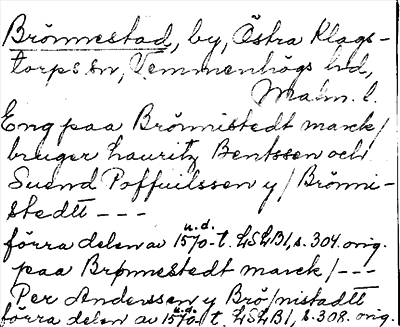 Brönnestad, by, Östra Klags-
torps sn, Vemmenhögs hd,
Malm. l.
Eng paa Brönnistedt marck/
bruger Lauritz Bentssen och
Suend Poffuilssen y/Brönni-
stedtt - - -
förra delen av 1570-t. u.d. LSLB1, s. 304. orig.
paa Brønnestedt marck/---
Per Anderssen y Brö/nistadtt
förra delen av 1570-t. u.d. LSLB1, s. 308. orig.